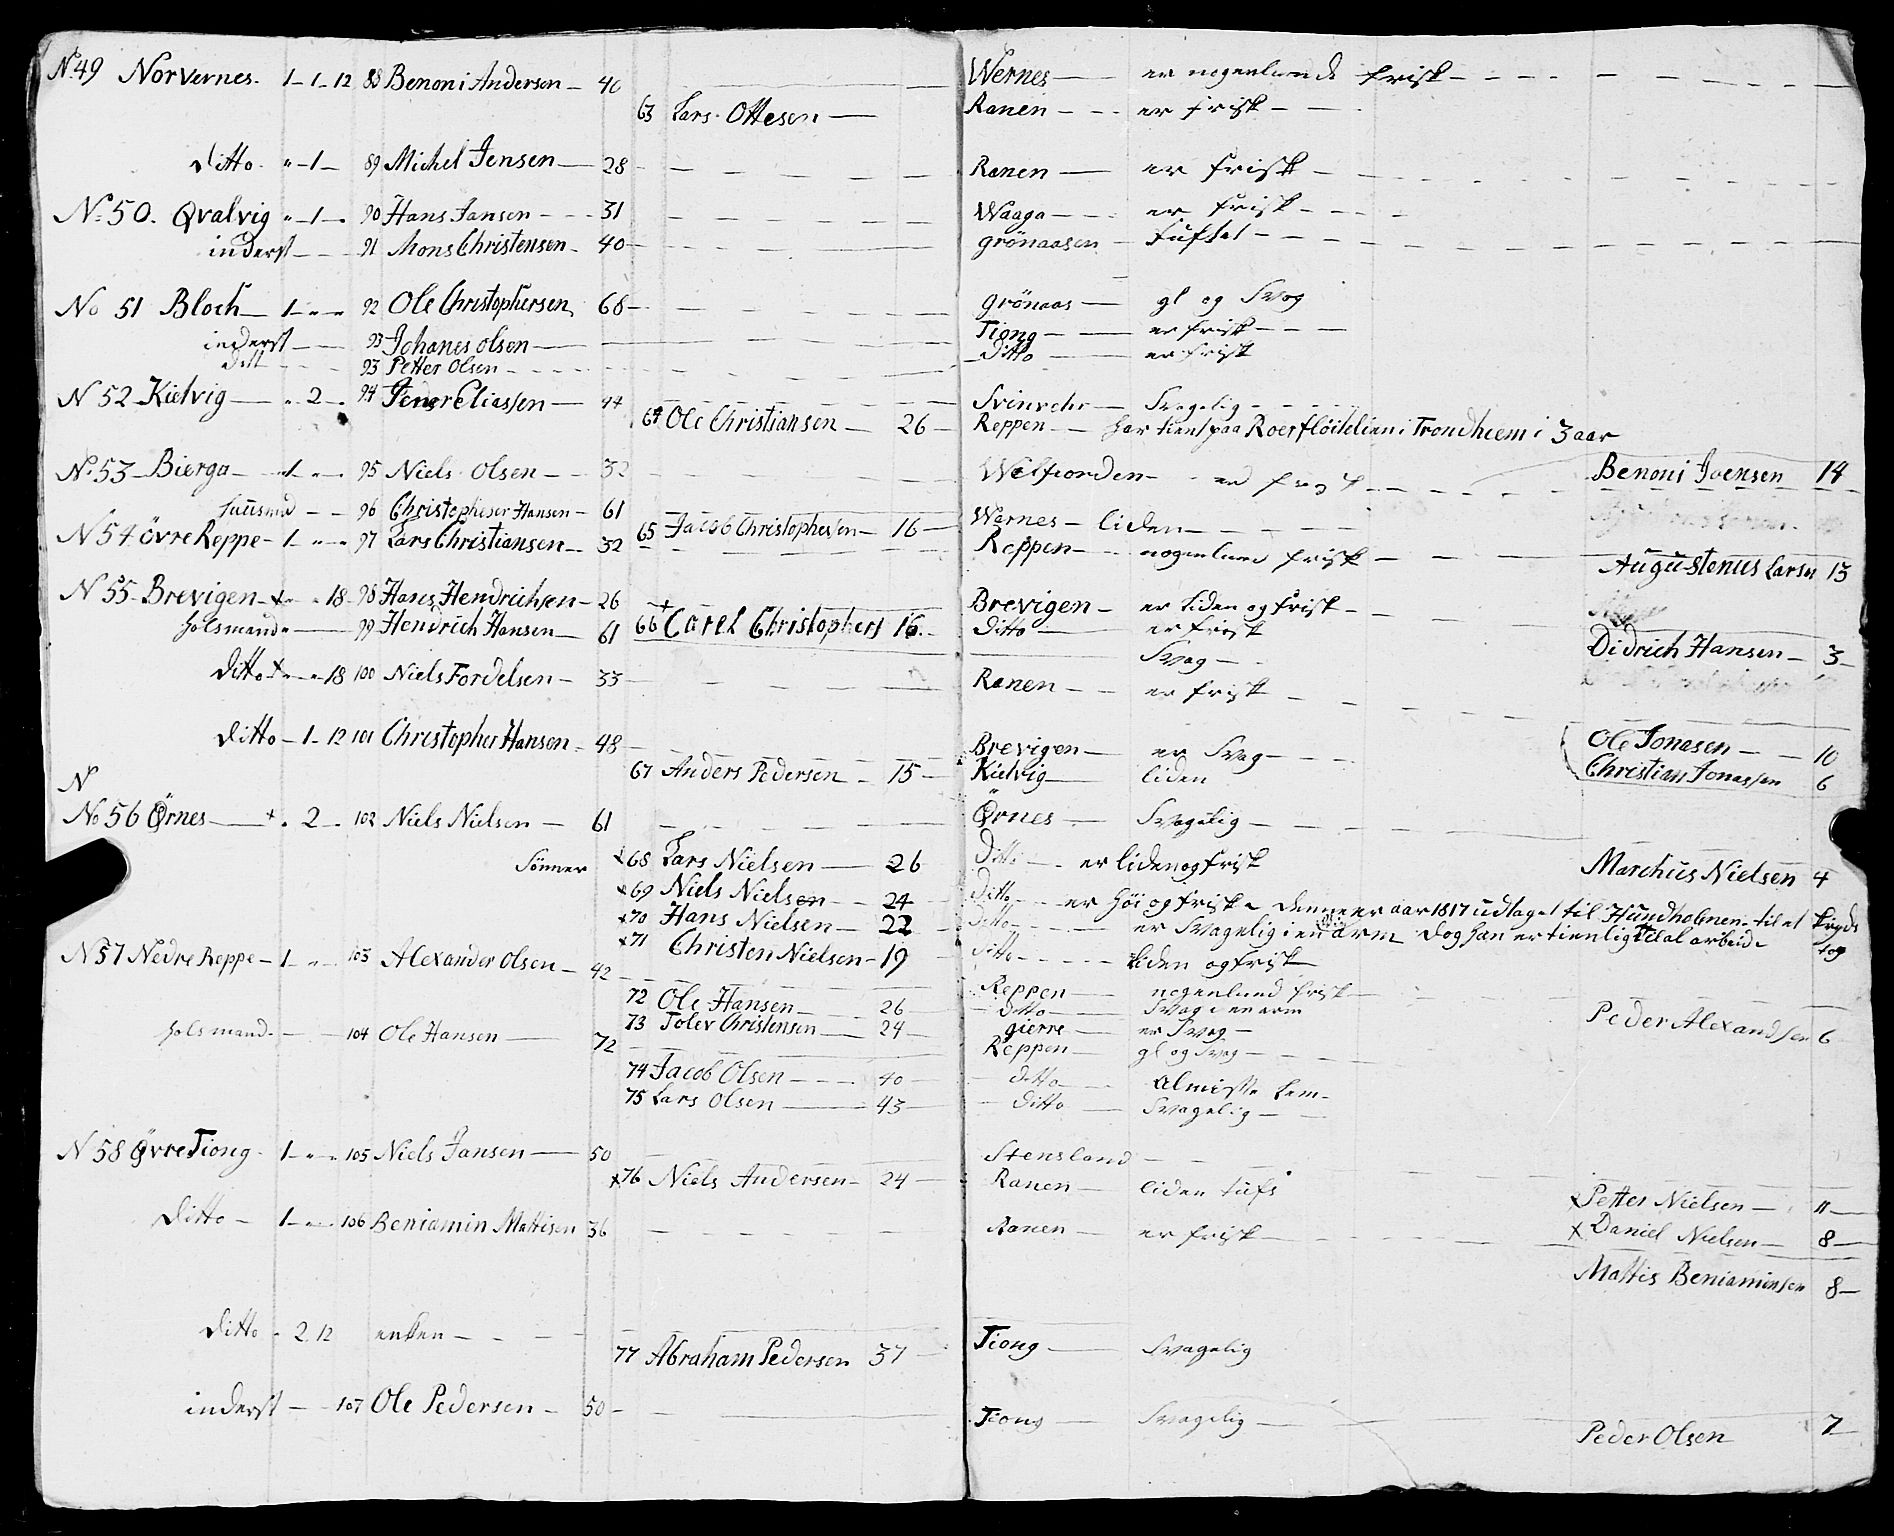 No 49 Norvernes. 1 - 1 - 12 88 Benoni Andersen - 40 Wernes - er nogenlunde frisk
63 Lars Ottesen Ranen - er frisk
Ditto " - 1 - 89 Michel Jensen - 28 Ranen - er frisk
No 50. Qvalvig " - 1 - " 90 Hans Jansen - 31 Waaga - er frisk
inderst 91 Mons Christensen - 40 grönaasen
No 51 Bloch - 1 - " - " 92 Ole Christophersen 68 grönaas - gl og Svag
inderst 93 Johanes Olsen Tiong - er frisk
Ditt 93 Petter Olsen Ditto - er frisk
N 52 Kielvig - " - 2 - " 94 Eliassen - 44 Svinvehr - Svagelig
64 Ole Christiansen - 26 Reppen - har tient paa Roerfloitelien i Trondhiem i 3 aar
No 53 Bierga - 1 - " - " 95 Niels Olsen - 32 Welfiorden - er frisk Benoni Joensen 14
huusmd 96 Christopher Hansen - 61
65 Jacob Christophersen - 16 Wernes - liden
N 54 övre Reppe - 1 - " - " 97 Lars Christiansen - 32 Reppen - nogenlund frisk Augustenus Larsen 13
N 55 Brevigen - x - " - 18 98 Hans Hendrichsen - 26 Brevigen - er liden og frisk
holsmand 99 Hendrich Hansen - 61 66 Carel Christophers 16 Ditto - er frisk
Svag Didrich Hansen - 3
Ditto x - " - 18 100 Niels Fordelsen - 33 Ranen - er frisk
Ditto - 1 - 12 101 Christopher Hansen - 48 Brevigen - er Svag Ole Jonasen - 10
67 Anders Pedersen - 15 Kielvig - liden Christian Jonassen 6
N
No 56 Örnes - + " 2 - 102 Niels Nielsen - 61 Örnes - Svagelig
Sönner x 68 Lars Nielsen - 26 Ditto - er liden og frisk Marchus Nielsen 4
x 69 Niels Nielsen - 24 Ditto - er höi og frisk - denne er aar 1817 udtaget til Hundholmen - til et kryds
x 70 Hans Nielsen - 22 Ditto - er Svagelig i en arm Dog han er tienlig til al arbeide tog
x 71 Christen Nielsen - 19 Ditto - liden og frisk
N 57 Nedre Reppe - 1 - " - " 103 Alexander Olsen - 42
72 Ole Hansen - 26 Reppen - nogenlund frisk
73 Tolev Christensen - 24 Ditto - Svag i en arm Peder Alexandsen 6
gierre - er Svag
holsmand 104 Ole Hansen - 72 Reppen - gl og Svag
74 Jacob Olsen - 40 Ditto - almisse Lem
75 Lars Olsen - 43 Ditto - Svagelig
N 58 Övre Tiong - 1 - " - " 105 Niels Jansen - 50 Stensland
x 76 Niels Andersen - 24 Ranen - liden tufs x Petter Nielsen - 11
Ditto - 1 - " - " 106 Beniamin Mattisen 36 Ranen - er frisk x Daniel Nielsen - 8
Mattis Beniaminsen 8
Ditto " 2 12 enken
77 Abraham Pedersen 37 Tiong - Svagelig
inderst 107 Ole Pedersen - 50 Tiong - Svagelig
Peder Olsen 7